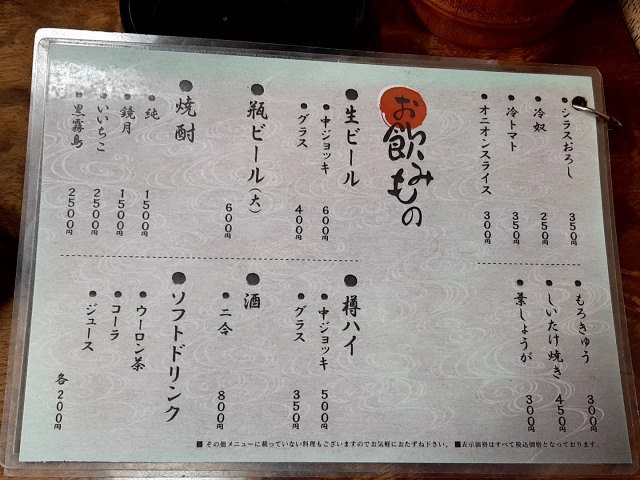 シラスおろし 350円
冷奴 250円
冷トマト 350円
オニオンスライス 300円
もろきゅう 300円
しいたけ焼き 450円
葉しょうが 300円
お飲みもの
生ビール
中ジョッキ 600円
グラス 400円
瓶ビール(大) 600円
焼酎
純 1500円
鏡月 1500円
いいちこ 2500円
黒霧島 2500円
樽ハイ
中ジョッキ 500円
グラス 350円
酒
二合 800円
ソフトドリンク
ウーロン茶
コーラ
ジュース
各200円
■その他メニューに載っていない料理もございますのでお気軽におたずね下さい。 ■表示価格はすべて税込価格となっております。